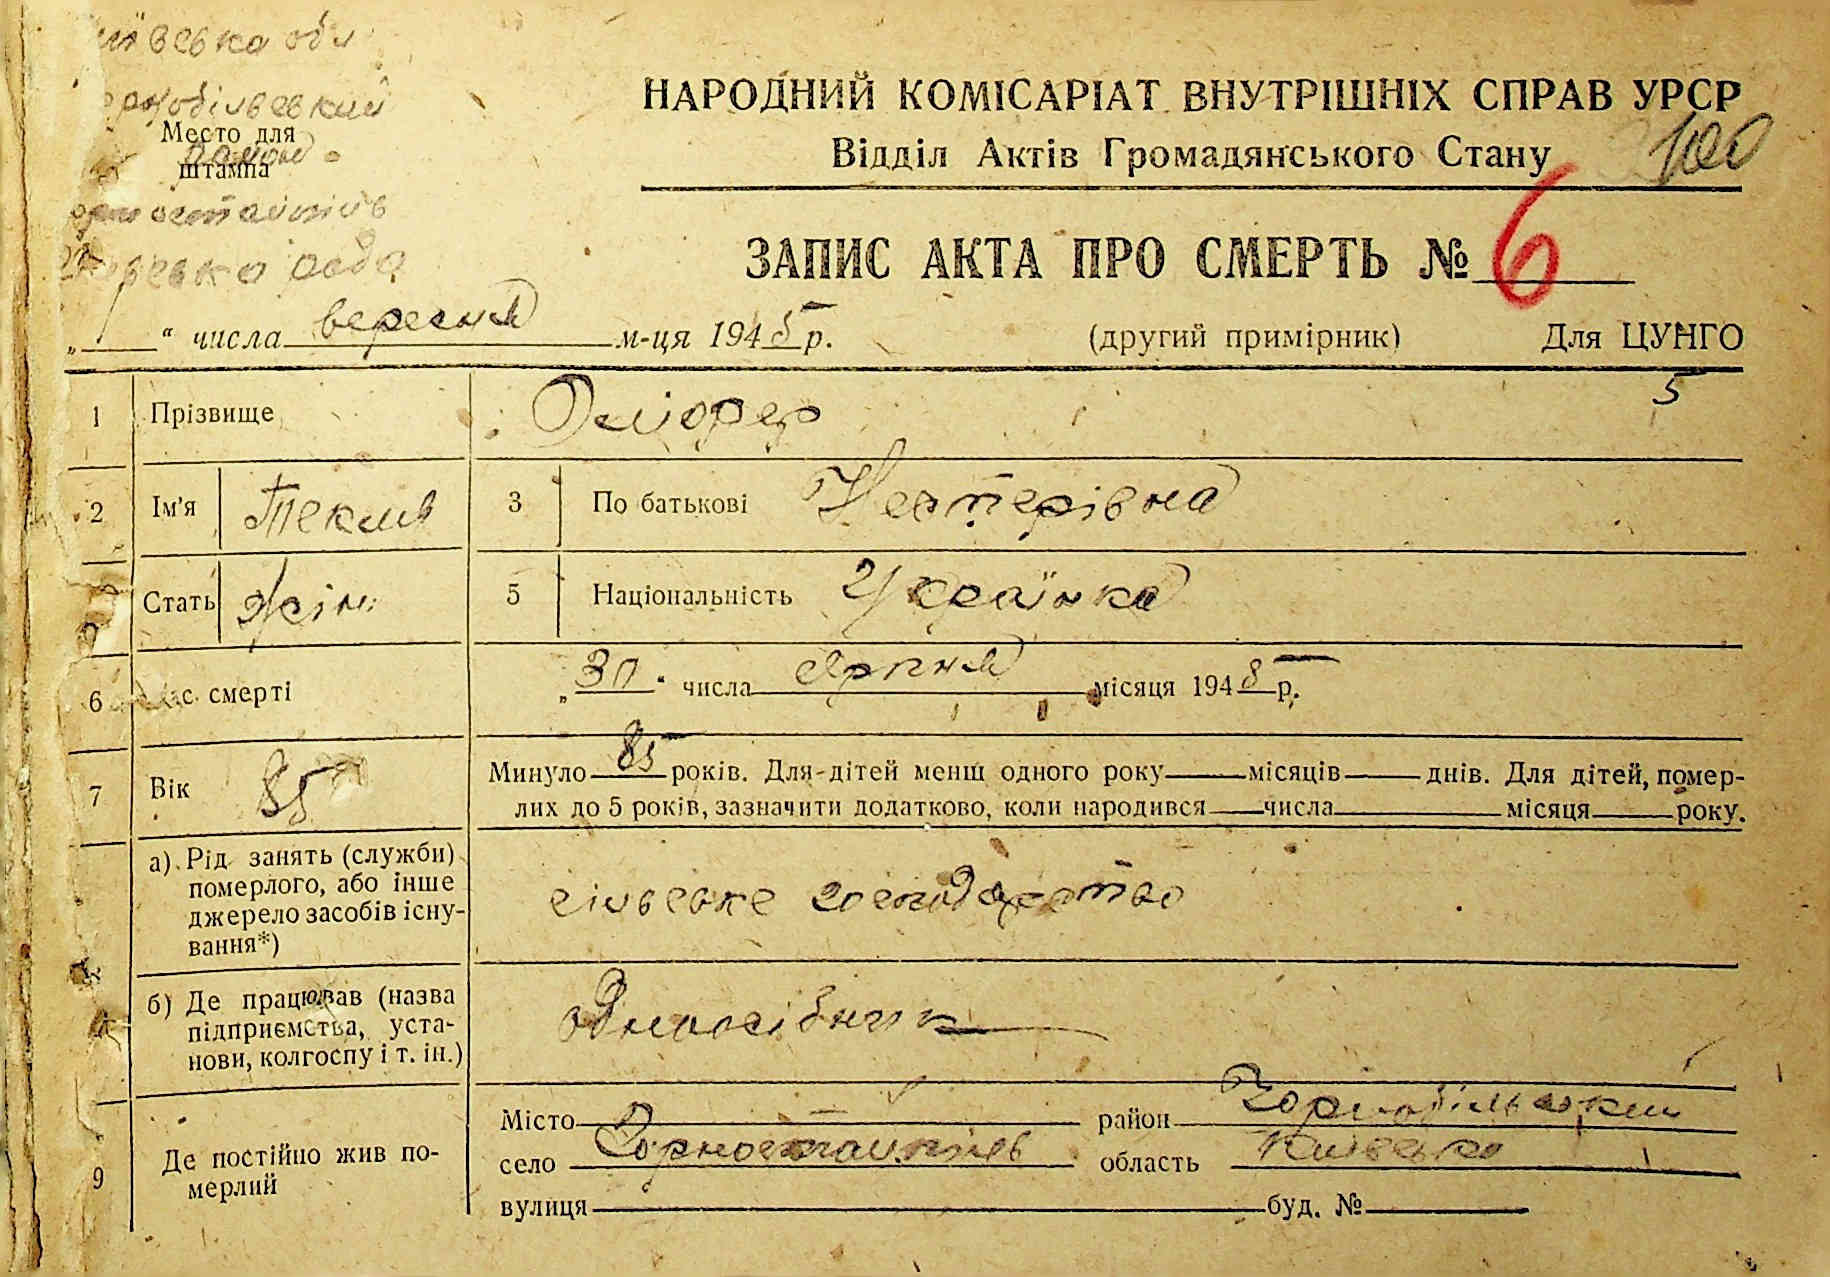 обл
Место для
штампа
НАРОДНИЙ КОМІСАРІАТ ВНУТРІШНІХ СПРАВ УРСР
Відділ Актів Громадянського Стану
100
ЗАПИС АКТА ПРО СМЕРТЬ № 6
„ “ числа вересня м-ця 1945 р. (другий примірник) Для ЦУНГО
5
1 Прізвище
2 Ім'я Текля 3 По батькові Нестерівна
Стать жін. 5 Національність Українка
6 час смерті „30“ числа серпня місяця 1945 р.
7 Вік 85 Минуло 85 років. Для дітей менш одного року місяців днів. Для дітей, помер-
лих до 5 років, зазначити додатково, коли народився числа місяця року.
а) Рід занять (служби)
померлого, або інше
джерело засобів існу-
вання*)
сільське господарство
б) Де працював (назва
підприємства, уста-
нови, колгоспу і т. ін.)
одноосібник
9 Де постійно жив по-
мерлий
Місто район Чорнобільський
село Горностайпіль область Київська
вулиця буд. №